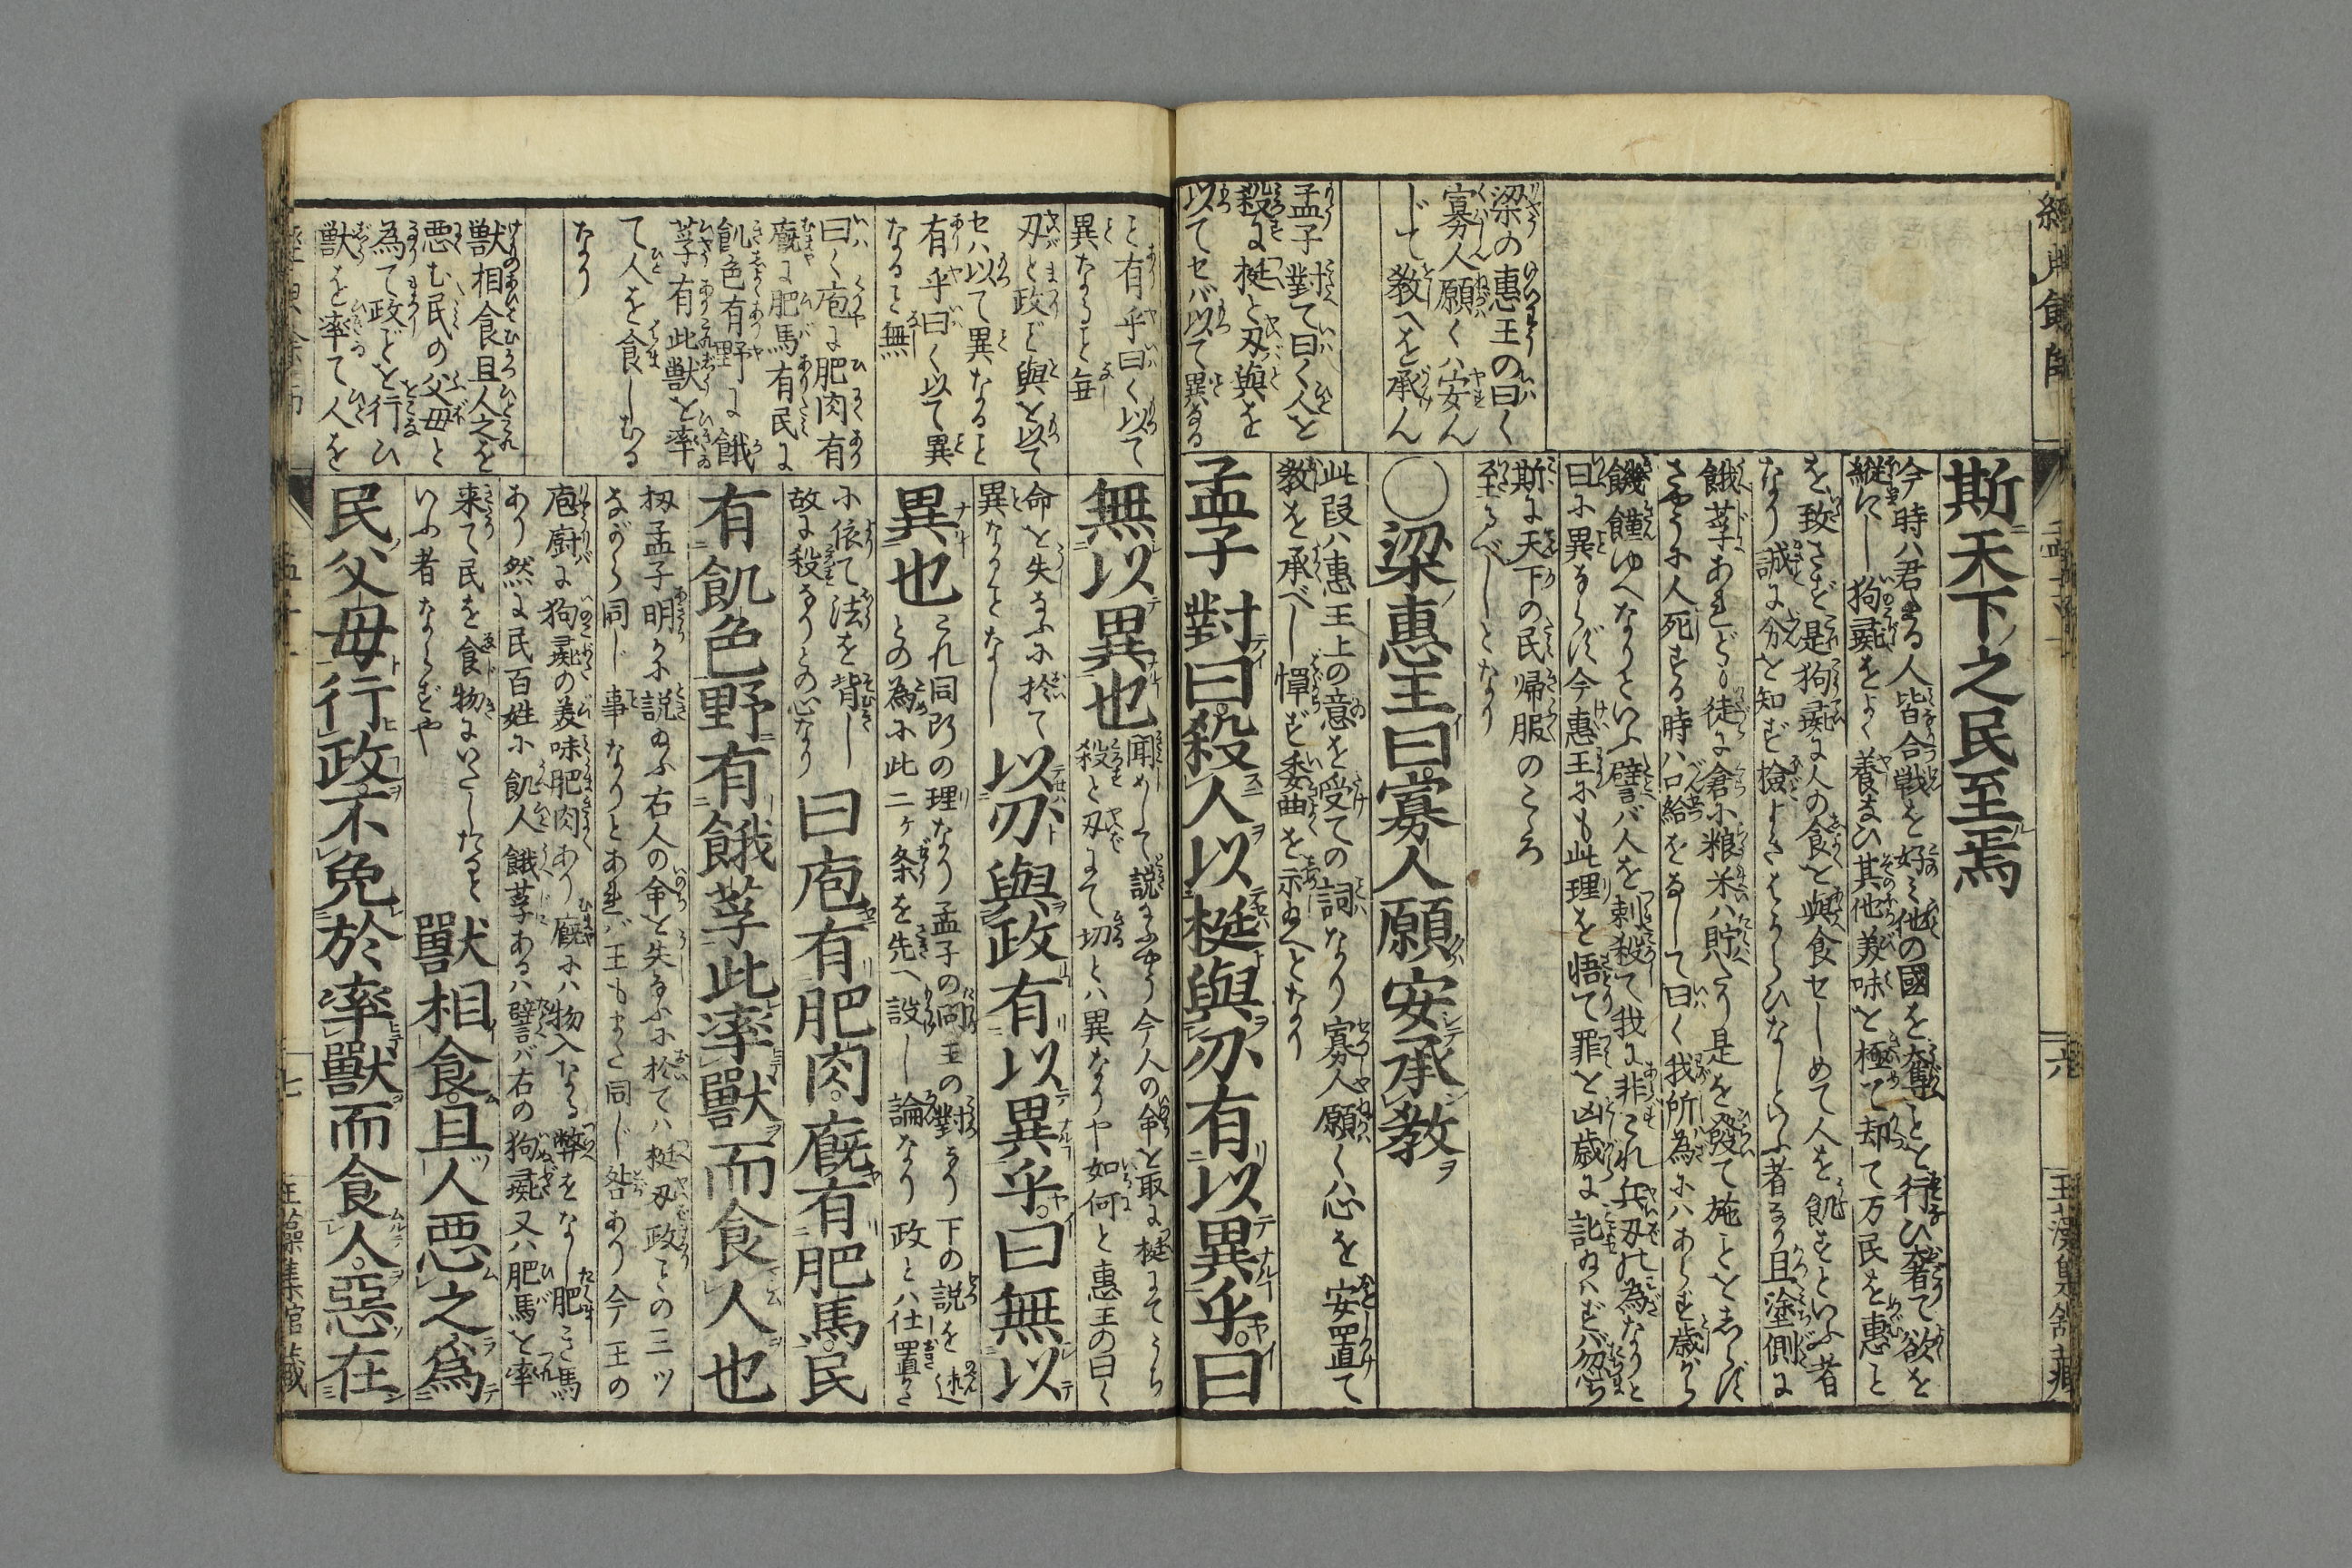 經典餘師
梁の惠王の曰く
寡人願くハ安ん
じて教へを承ん
孟子對て曰く人を
殺に梃と刃與を
以てセバ以て異なる
孟子
六
斯天下之民至焉
今時ハ君たる人皆合戦を好ミ他の國を奪ことを行ひ奢て欲を
縦にし狗彘をよく養なひ其他美味を極て却て万民を惠こと
を致さず是狗彘に人の食を與食セしめて人を飢すといふ者
なり誠に分を知ず撿よきはからひなしといふ者なり且塗側に
餓莩あれども徒に倉に粮米ハ貯たり是を發て施ことを志らず
さやうに人死する時ハ口給をなして曰く我所為にハあらず歳から
饑饉ゆへなりといふ譬バ人を刺殺て我に非これ兵刃の為なりと
曰に異ならず今惠王にも此理を悟て罪を凶歳に訛ゐハずバ忽ち
斯に天下の民帰服のころ
至るべしとなり
○梁惠王曰寡人願安承教
此段ハ惠王上の意を受ての詞なり寡人願くハ心を安置て
教を承べし憚ず委曲を示ゐへとなり
孟子對曰殺人以梃與刃有以異乎曰
と有乎曰く以て
異なること毎
刃と政ど與を以て
セハ以て異なること
有乎曰く以て異
なること無
曰く庖に肥肉有
廐に肥馬有民に
飢色有野に餓
莩有此獣を率
て人を食しむる
なり
獣相食且人之を
悪む民の父母と
為て政どを行ひ
獣を率て人を
無以異也
聞めして説たふやう今人の命を取に梃にてうち
殺と刃にて切とハ異なりや如何と惠王の曰く
命を失なふに於て
異なることなし
以刃與政有以異乎曰無以
異也
これ同断の理なり孟子の爾王の對なり下の説を述
との為に此二ヶ条を先へ設し論なり政とハ仕置き
に依て法を背し
故に殺るゝとの心なり
曰庖有肥肉廐有肥馬民
有飢色野有餓莩此率獸而食人也
扨孟子明かに説のふ右人の命を失なふに於てハ梃刃政との三ツ
ながら同じ事なりとあれバ王もまた同じ咎あり今王の
庖廚に狗彘の美味肥肉あり廐にハ物入たる弊をなし肥こき馬
あり然に民百姓に飢人餓莩あるハ譬バ右の狗彘又ハ肥馬を率
来て民を食物にいたしたると
いふ者ならずや
獸相食且人悪之為
民父母行政不免於率獸而食人惡在
七